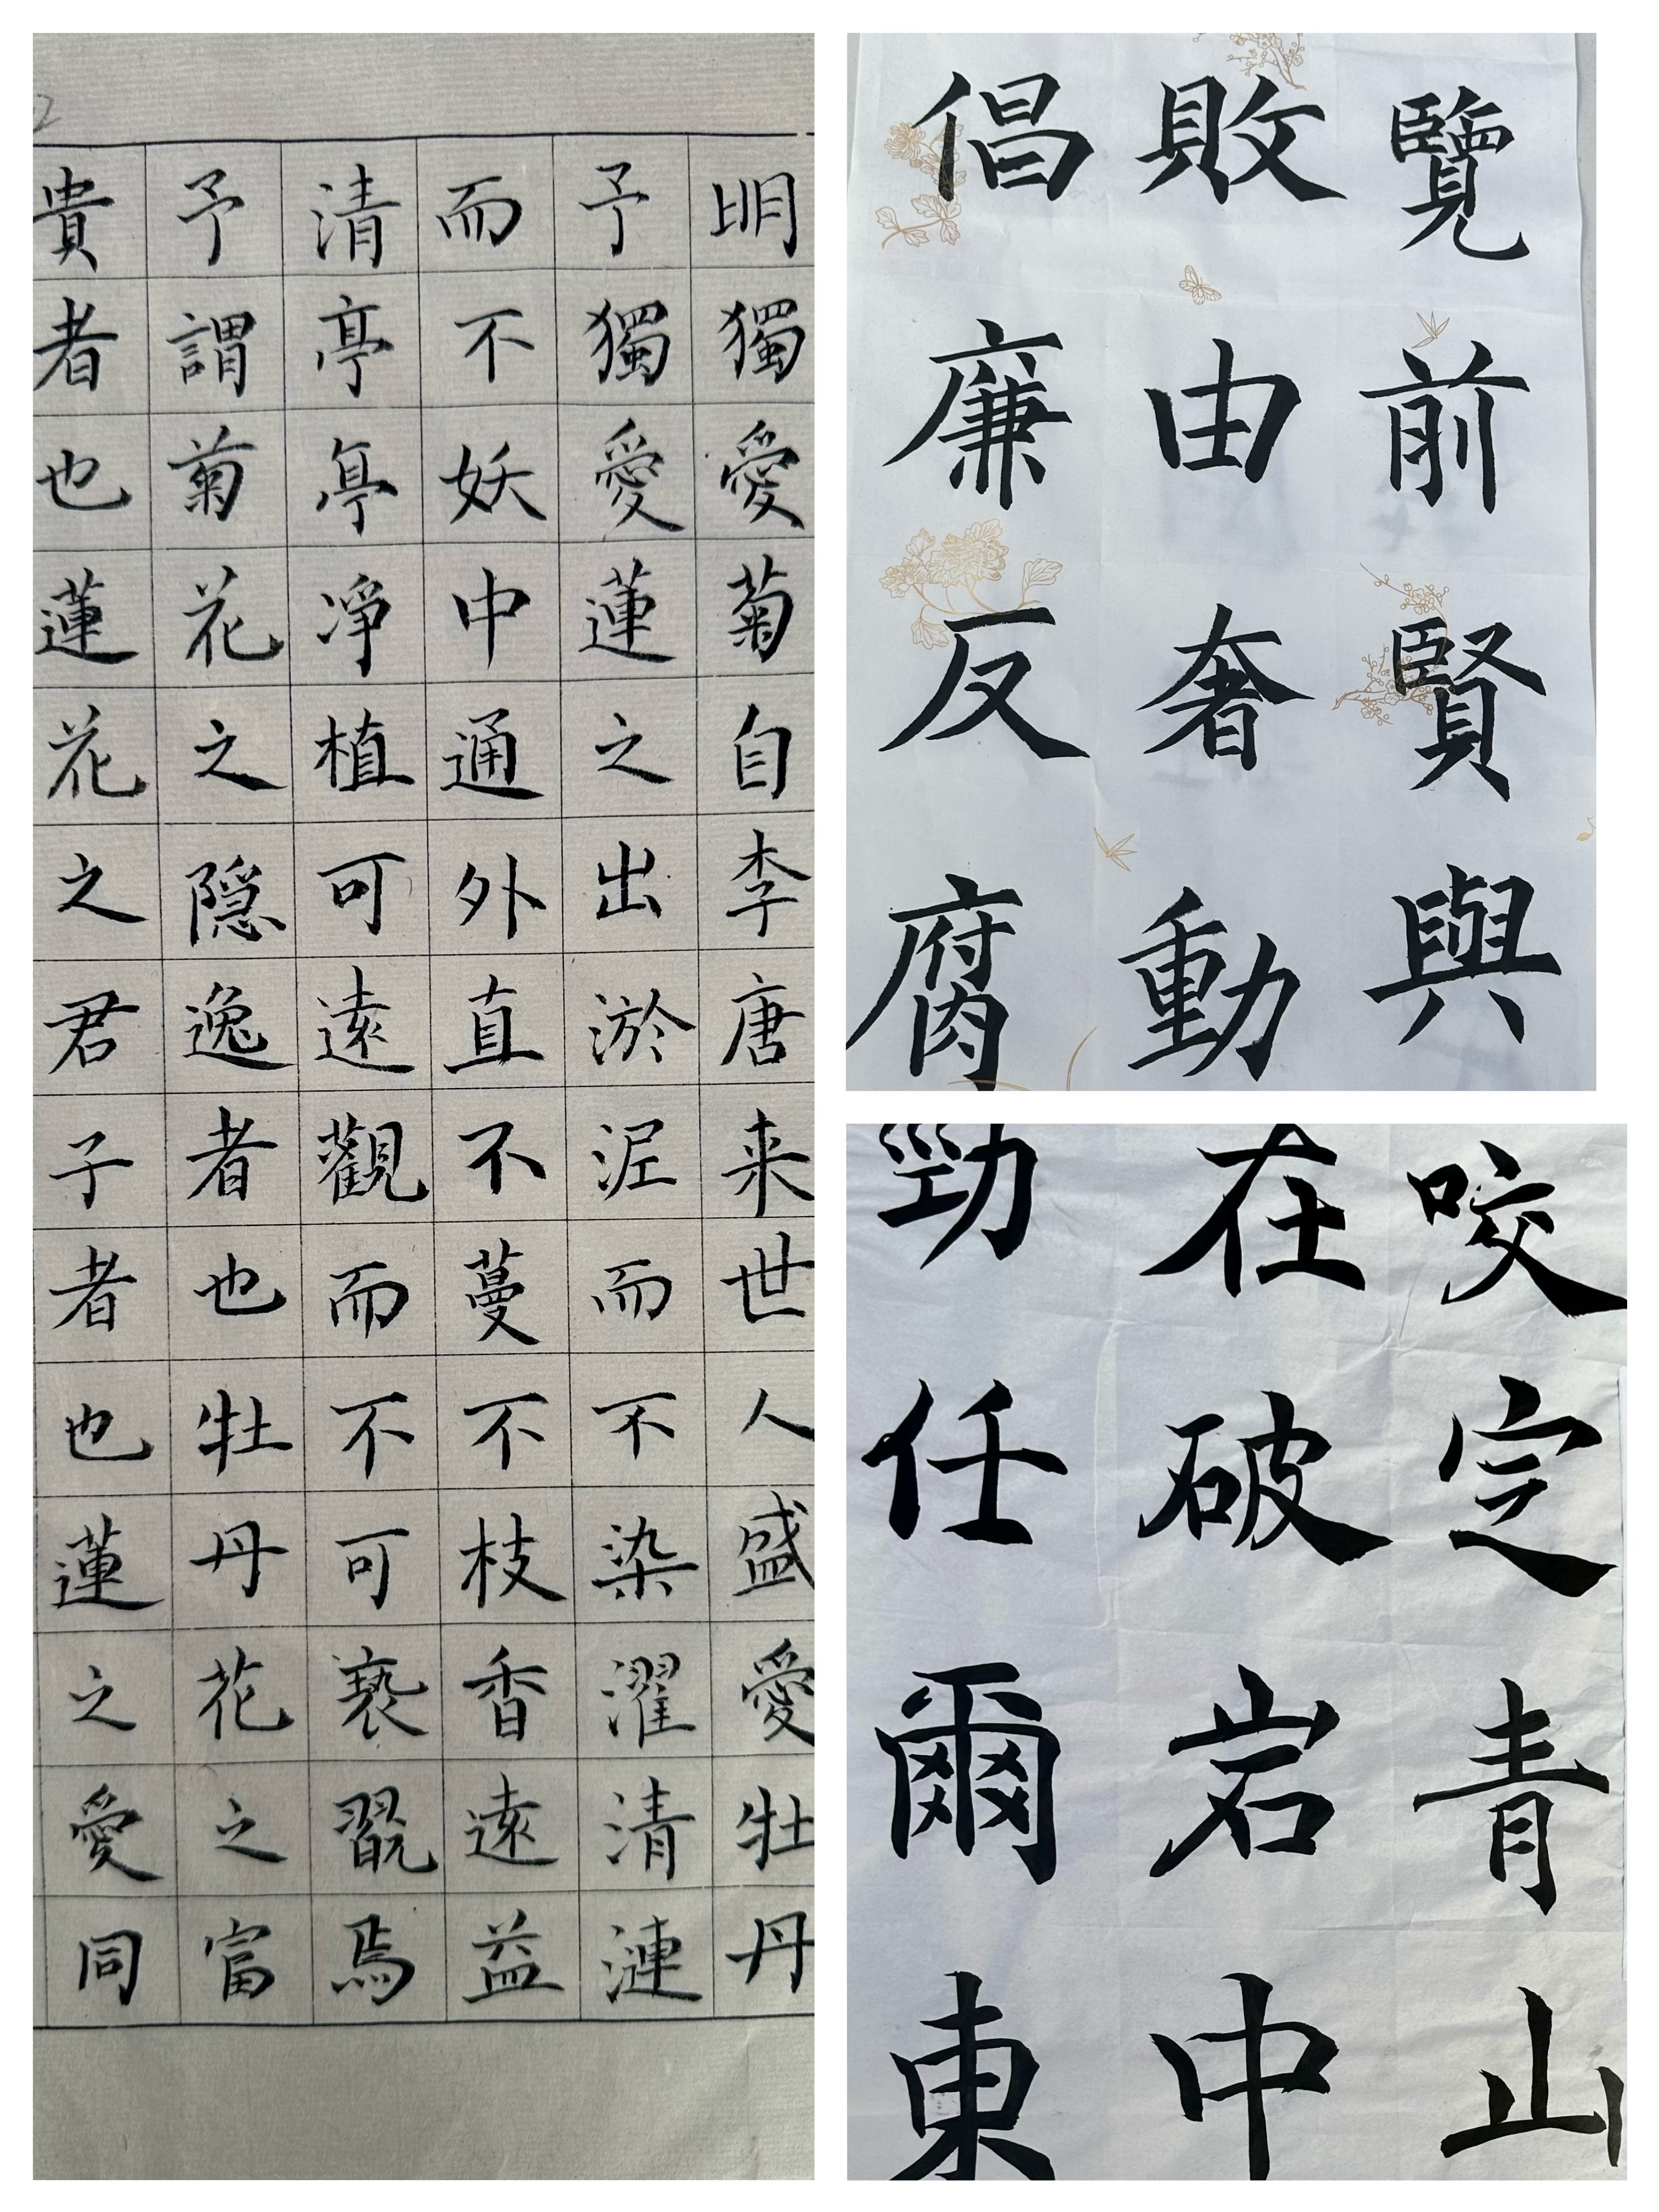 明獨愛菊自李唐来世人盛愛牡丹
予獨愛蓮之出淤泥而不染濯清漣
而不妖中通外直不蔓不枝香遠益
清亭亭凈植可遠觀而不可褻翫焉
予謂菊花之隐逸者也牡丹花之富
貴者也蓮花之君子者也蓮之愛同
覽前賢與
敗由奢動
倡廉反腐
咬定青山
在破岩中
勁任爾東